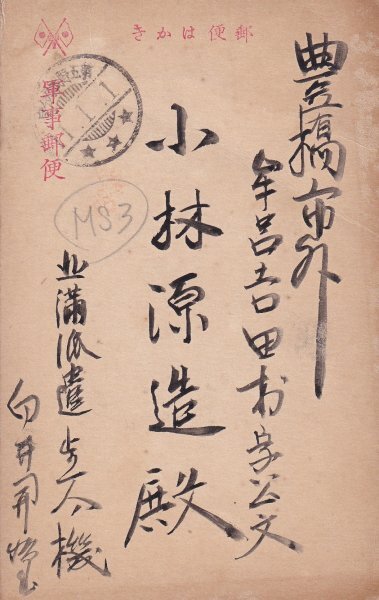 郵便はかき
軍事郵便
豊橋市外
牟呂吉田村字公文
小林源造殿
北満派遣歩六機
MS3